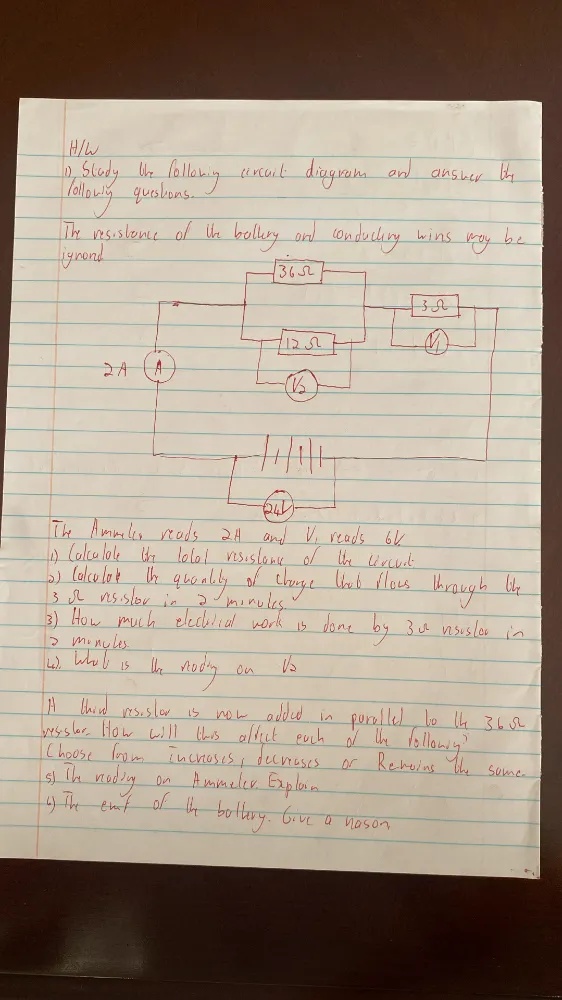 H/W
1) Study the following circuit diagram and answer the
following questions.
The resistance of the battery and conducting wires may be
ignored
36Ω
3Ω
12Ω
V1
2A
A
V2
24V
The Ammeter reads 2A and V1 reads 6V
1) Calculate the total resistance of the circuit
2) Calculate the quantity of charge that flows through the
3 Ω resistor in 2 minutes
3) How much electrical work is done by 3Ω resistor in
2 minutes
4) What is the reading on V2
A third resistor is now added in parallel to the 36Ω
resistor. How will this affect each of the following?
Choose from increases, decreases or Remains the same
5) The reading on Ammeter. Explain
6) The emf of the battery. Give a reason